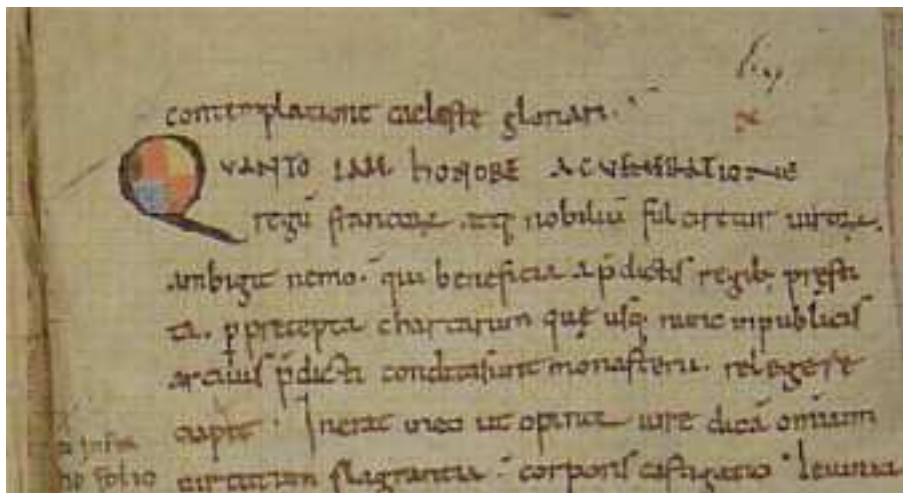 contemplatione cȩleste gloriari.
QVANTO IAM HONORE AC VENERATIONE
regū francoꝝ atq; nobiliū fulciretur uiroꝝ.
ambigit nemo. qui beneficia a p̄dictis regib; pręsti
ta. ꝑ precepta chartarum quę usq; nunc inpublicis
arciuis p̄dicti condita sunt monasterii. relegere
cupit. Inerat in eo ut opinor iure dicā omnium
uirtutum flagrantia. corporis castigatio. ieiunia
a infra
no folio